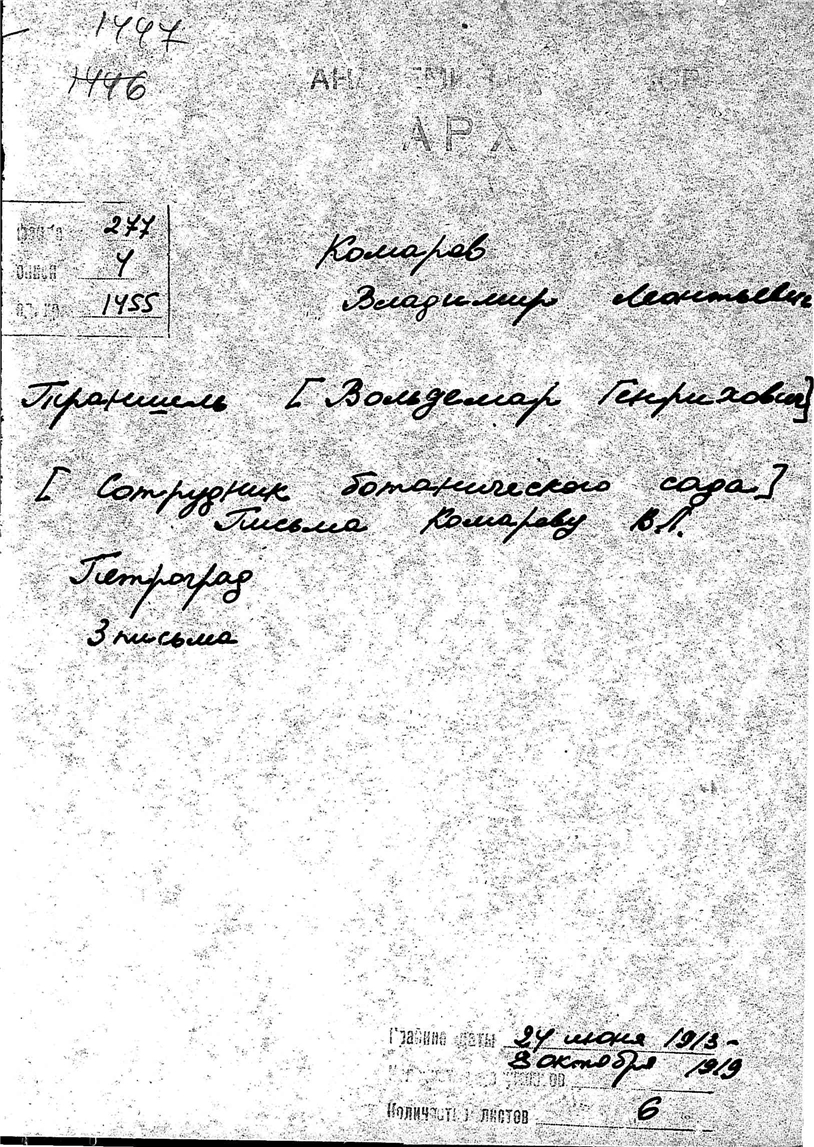 1447
1446
АРХ
277
опись 4
1455
Комаров
Владимир Леонтьевич
Траншель [Вольдемар Генрихович]
[Сотрудник ботанического сада]
Письма Комарову В.Л.
Петроград
3 письма
Крайние даты 24 июня 1913 -
8 октября 1919
Количество листов 6